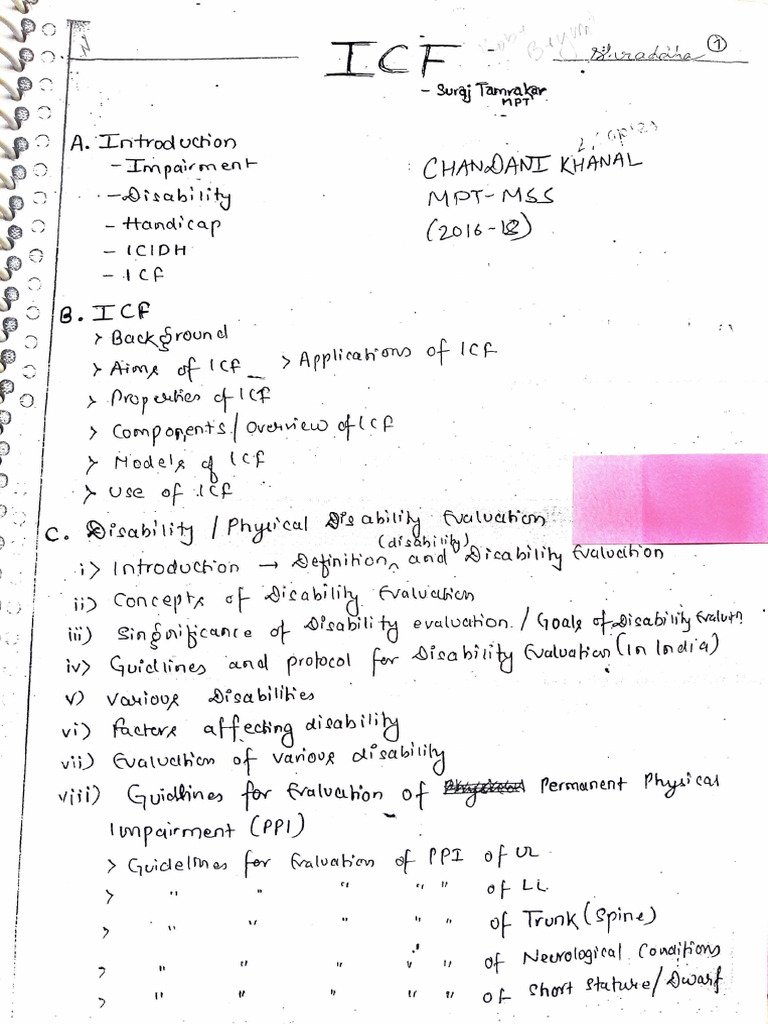 1
ICF
- Suraj Tamrakar
MPT
A. Introduction
- Impairment
CHANDANI KHANAL
- Disability
MPT-MSS
- Handicap
(2016-18)
- ICIDH
- ICF
B. ICF
> Background
> Aims of ICF > Applications of ICF
> Properties of ICF
> Components / Overview of ICF
> Models of ICF
> Use of ICF
C. Disability / Physical Disability Evaluation
(disability)
i) Introduction → Definition and Disability Evaluation
ii) Concepts of Disability Evaluation
iii) Singnificance of Disability evaluation. / Goals of Disability Evalutn
iv) Guidlines and protocol for Disability Evaluation (In India)
v) Various Disabilities
vi) Factors affecting disability
vii) Evaluation of various disability
viii) Guidlines for Evaluation of Permanent Physical
Impairment (PPI)
> Guidelines for Evaluation of PPI of UL
> " " " " " of LL
> " " " " " of Trunk (Spine)
> " " " " " of Neurological Conditions
> " " " " " of Short Stature / Dwarf